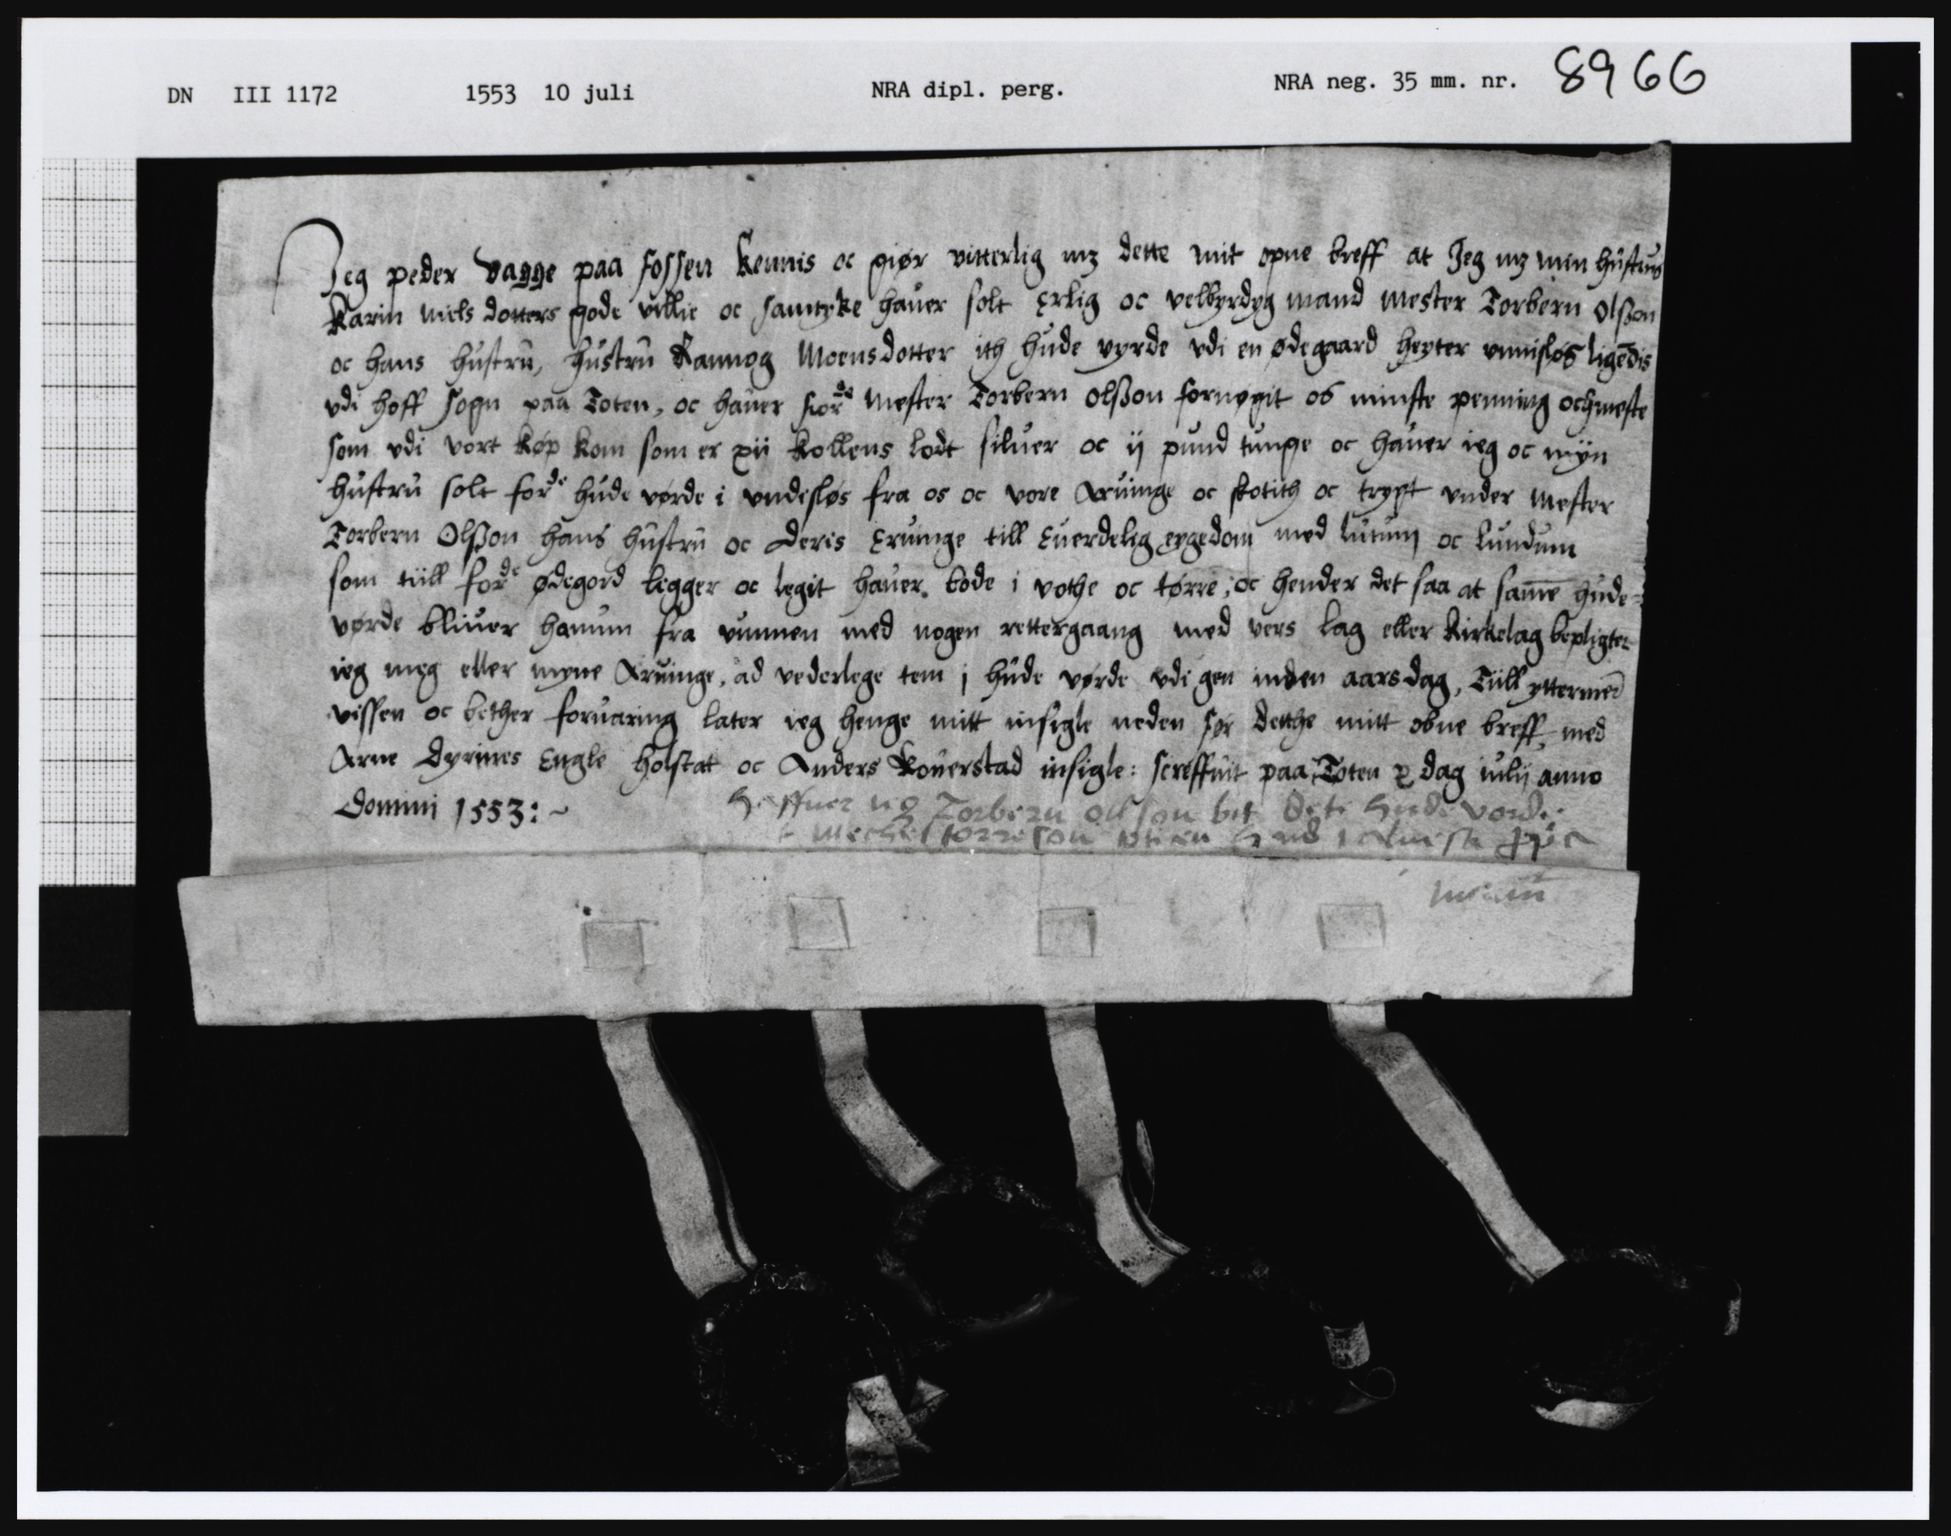 DN III 1172 1553 10 juli NRA dipl. perg. NRA neg. 35 mm. nr. 8966
Jeg peder vagge paa fossen kennis oc giør vitterlig mz dette mit opne breff at Jeg mz min hustrus
Karin niels dotters gode villie oc samtyke hauer solt erlig oc velbyrdyg mand mester Torbern olsson
oc hans hustru, hustru Rannog Moens dotter ith hude vyrde vdi en ødegaard heyter vnnisløs ligēdis
vdi hoff sogn paa Toten, oc hauer forde Mester Torbern olsson fornøgit os minste penning oc meste
som vdi vort køp kom som er xii kollens lodt siluer oc ij pund tunge oc hauer ieg oc myn
hustru solt forde hude vørde i vndesløs fra os oc vore Aruinge oc skotith oc trygt vnder Mester
Torbern Olsson hans hustru oc deris Eruinge till Euerdelig eygedom med lutum oc lundum
som tiill forde ødegord ligger oc legit hauer bode i vothe oc tørre, oc hender det saa at sam̄e hude
vørde bliuer hanum fra vunnen med nogen rettergaang med vers lag eller kirkelag bepligter
ieg meg eller myne Aruinge, ad vederlege tem j hude vørde vdi gen inden aars dag, Tiill yttermer
vissen oc bether foruaring later ieg henge mitt insigle neden for detthe mitt obne breff, med
Arne dyrines Engle holstat oc Anders kouerstad insigle: screffuit paa Toten x dag iulij anno
Domini 1553: ~
haffuer ieg Torbern olsson bet dete hude vorde
Mechel torreson